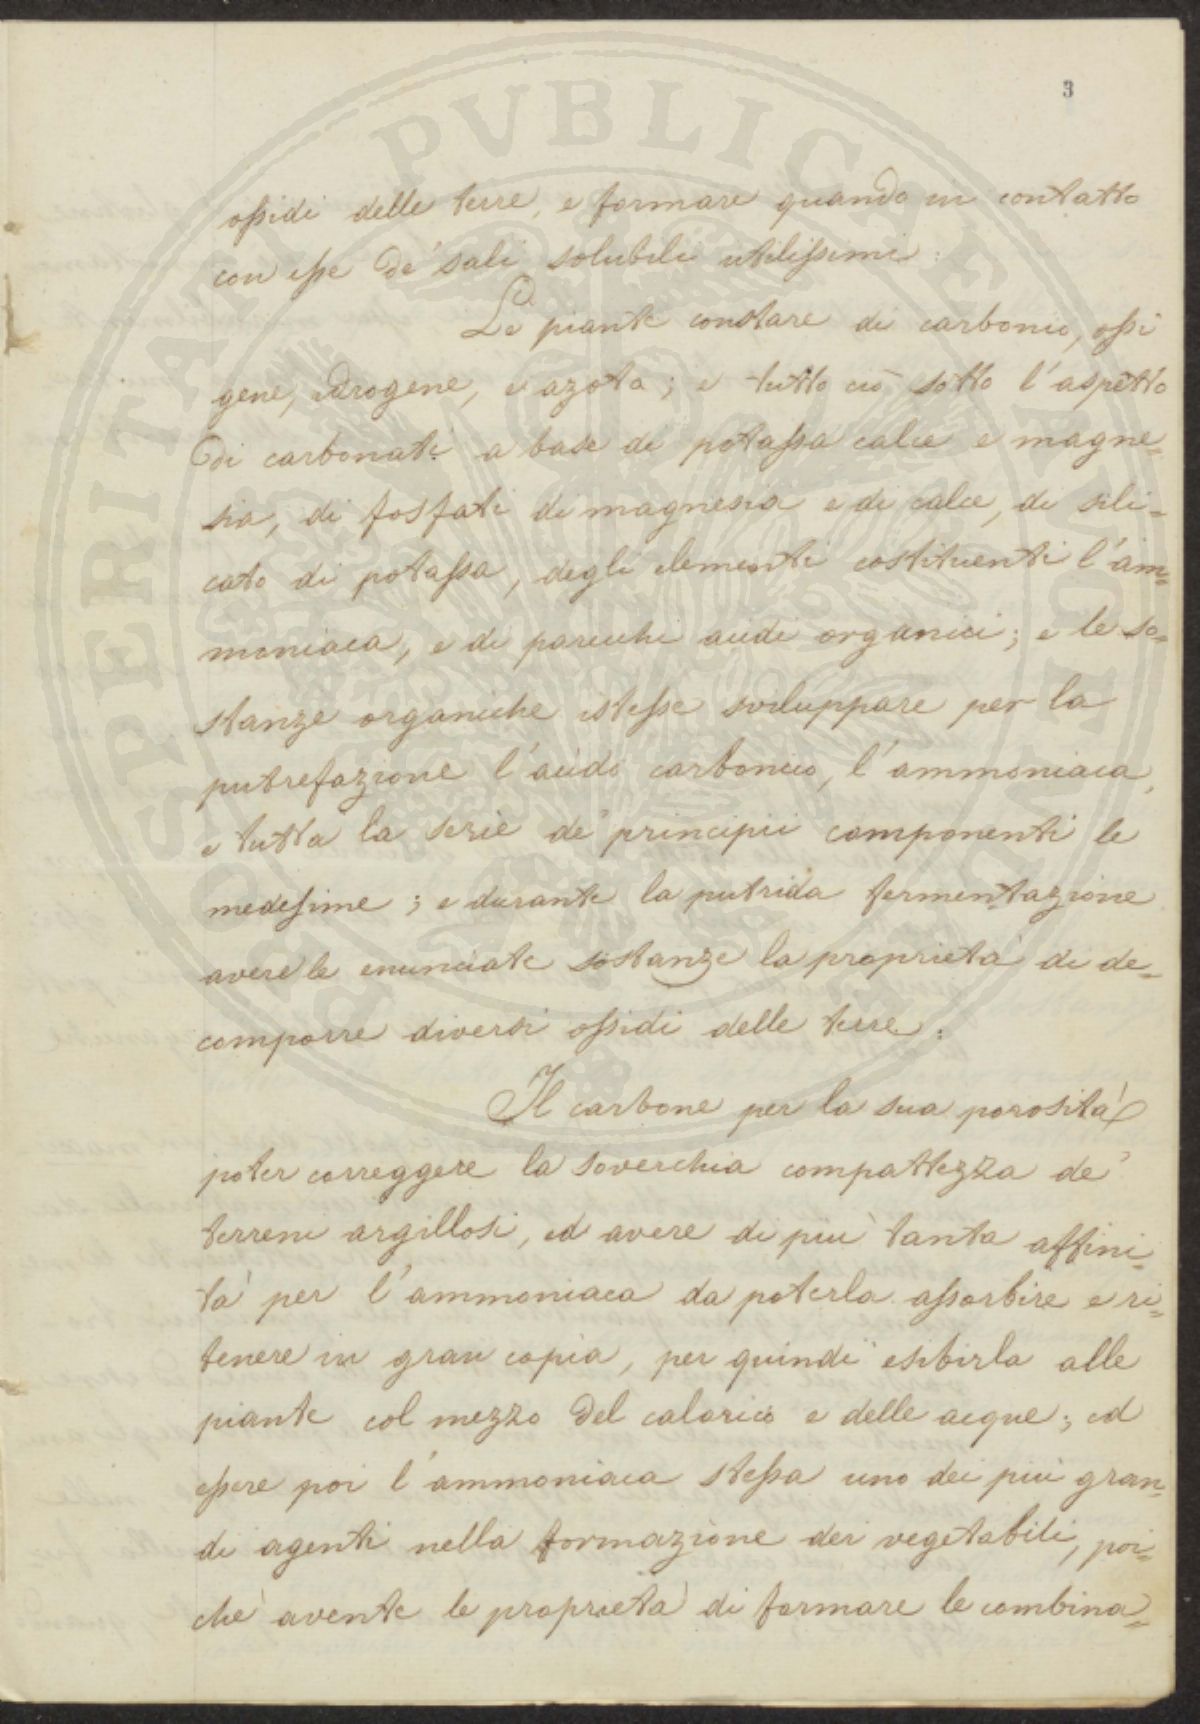 3
ossidi delle terre, e formare quando in contatto
con esse de' sali solubili utilissimi:
Le piante constare di carbonio, ossi
gene, idrogene, e azoto; e tutto ciò sotto l'aspetto
di carbonati a base di potassa calce e magne=
sia, di fosfati di magnesia e di calce, di sili=
cato di potassa, degli elementi costituenti l'am=
moniaca, e di parecchi acidi organici; e le so=
stanze organiche istesse sviluppare per la
putrefazione l'acido carbonico, l'ammoniaca,
e tutta la serie de' principii componenti le
medesime; e durante la putrida fermentazione
avere le enunciate sostanze la proprietà di de=
comporre diversi ossidi delle terre:
Il carbone per la sua porosità
poter correggere la soverchia compattezza de'
terreni argillosi, ed avere di più tanta affini=
tà per l'ammoniaca da poterla assorbire e ri=
tenere in gran copia, per quindi esibirla alle
piante col mezzo del calorico e delle acque; ed
essere poi l'ammoniaca stessa uno dei più gran=
di agenti nella formazione dei vegetabili, poi=
chè avente le proprietà di formare le combina=
PROSPERITATI PVBLICAE